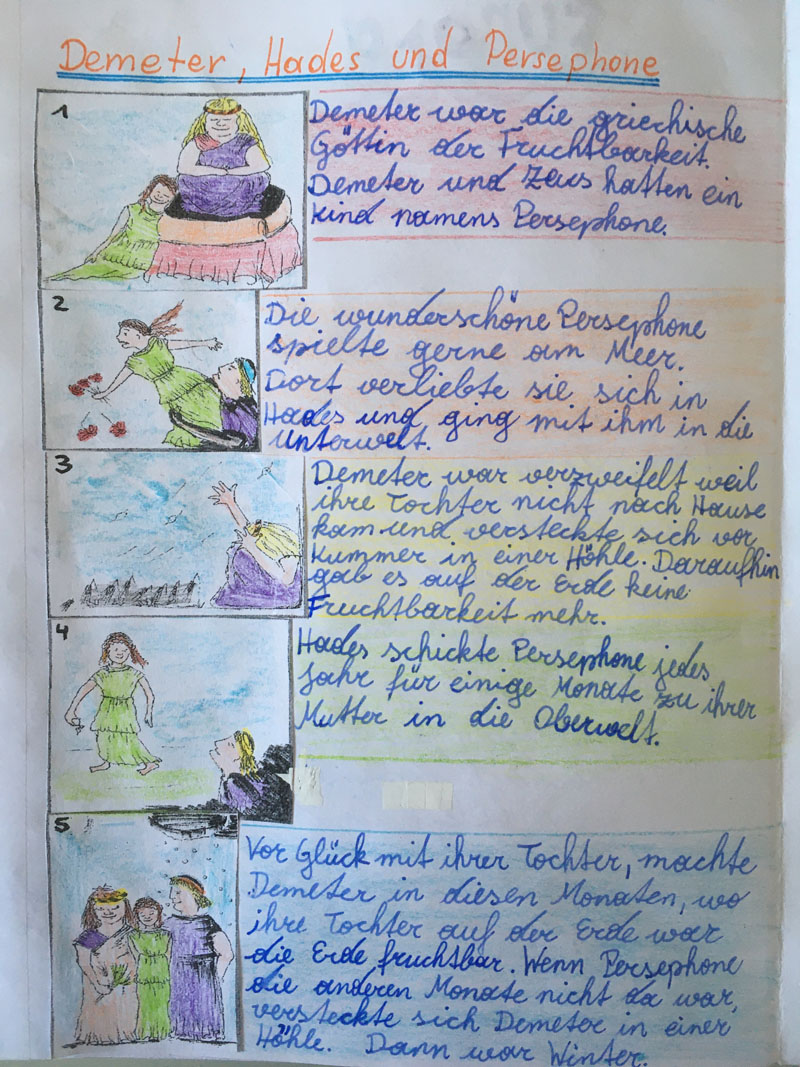 Demeter, Hades und Persephone
1
Demeter war die griechische
Göttin der Fruchtbarkeit.
Demeter und Zeus hatten ein
Kind namens Persephone.
2
Die wunderschöne Persephone
spielte gerne am Meer.
Dort verliebte sie sich in
Hades und ging mit ihm in die
Unterwelt.
3
Demeter war verzweifelt weil
ihre Tochter nicht nach Hause
kam und versteckte sich vor
Kummer in einer Höhle. Daraufhin
gab es auf der Erde keine
Fruchtbarkeit mehr.
4
Hades schickte Persephone jedes
Jahr für einige Monate zu ihrer
Mutter in die Oberwelt.
5
Vor Glück mit ihrer Tochter, machte
Demeter in diesen Monaten, wo
ihre Tochter auf der Erde war
die Erde fruchtbar. Wenn Persephone
die anderen Monate nicht da war,
versteckte sich Demeter in einer
Höhle. Dann war Winter.